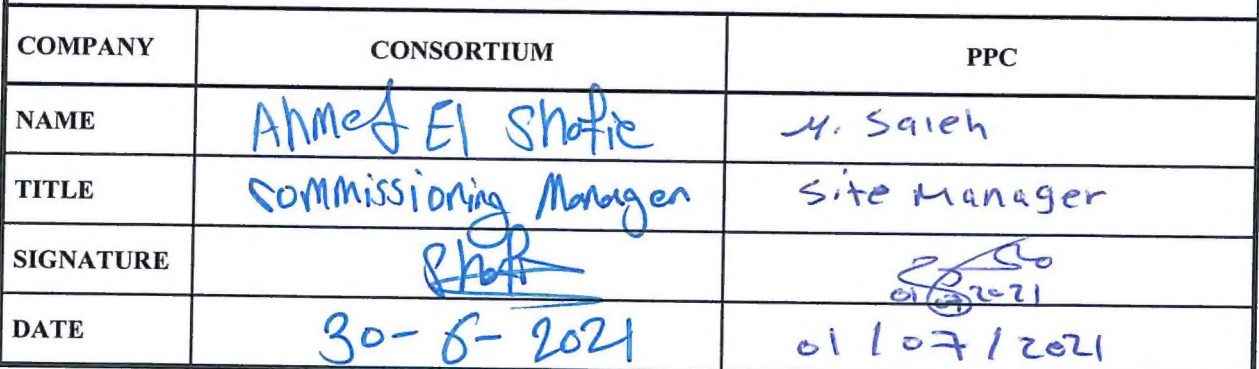 COMPANY CONSORTIUM PPC
NAME Ahmed El Shafie M. Saleh
TITLE Commissioning Manager Site Manager
SIGNATURE Shafi 01/07/2021
DATE 30-6-2021 01/07/2021